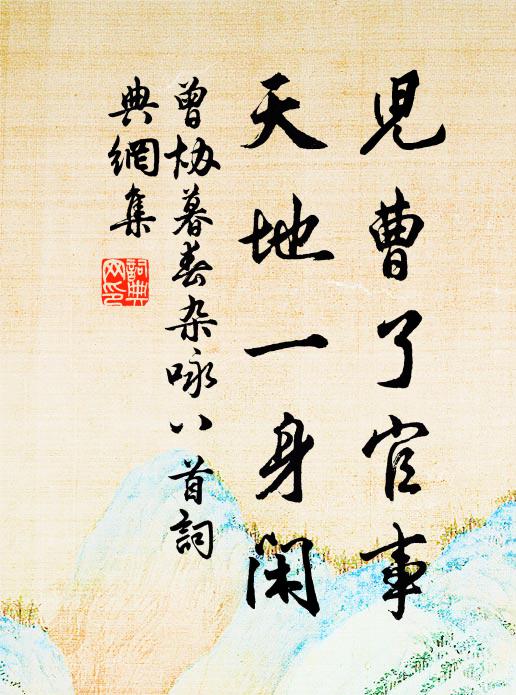 児曹了官事
天地一身閑
曾协暮春杂咏八首詞
典網集
詞典網印